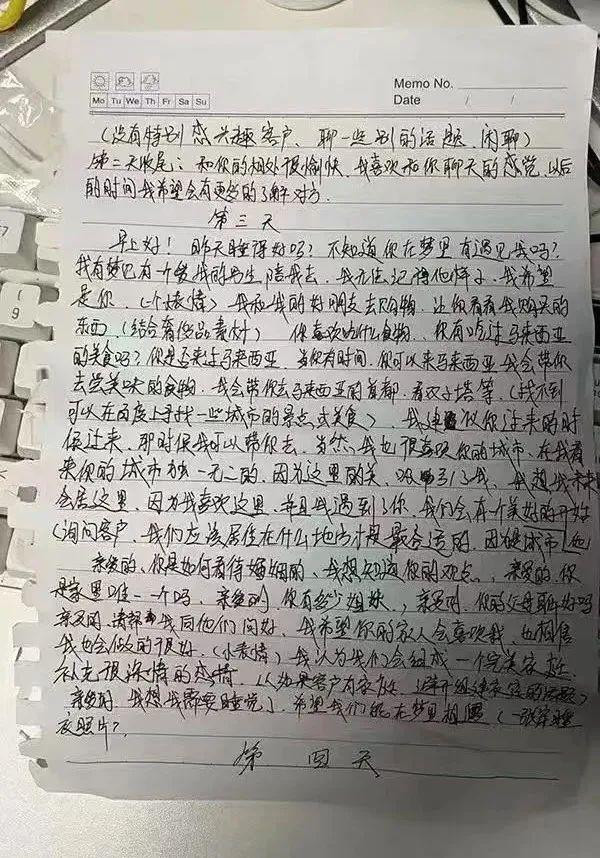 Memo No.
Mo Tu We Th Fr Sa Su
Date / /
(没有特别感兴趣客户、聊一些别的话题、闲聊)
第二天收尾:和你的相处很愉快、我喜欢和你聊天的感觉、以后
的时间我希望会有更多的了解对方.
第三天
早上好!昨天睡得好吗?不知道你在梦里有遇见我吗?
我有梦见有一个爱我的男生陪我去、我无法记得他样子、我希望
是你、(个表情)我和我的好朋友去购物、让你看看我购买的
东西、(结合奢侈品素材) 你喜欢吃什么食物、你有吃过马来西亚
的美食吗?你是否来过马来西亚、当你有时间、你可以来马来西亚我会带你
去尝美味的食物、我会带你去马来西亚的首都、看双子塔等、(找不到
可以在百度上寻找一些城市的景点或美食)、我建议你过来的时
候过来、那时候我可以带你去、当然我也很喜欢你的城市、在我看
来你的城市独一无二的、因为这里的美、吸引了我、我想我未来
会居这里、因为我喜欢这里、并且我遇到了你、我们会有个美好的开始
(询问客户、我们应该居住在什么地方才是最合适的、因 城市
亲爱的、你是如何看待婚姻的、我想知道你的观点、亲爱的、你
是家里唯一一个吗、亲爱的、你有多少姐妹、亲爱的、你的父母 好吗
亲爱的、请帮我同他们问好、我希望你的家人会喜欢我、也相信
我也会做的很好、(小表情)我认为我们会组成一个完美家庭
补充很深情的感情、 如果客户有家庭、避开组建家庭的话题)
亲爱的、我想我需要睡觉了、希望我们能在梦里相遇(一张穿睡
衣照片?
第四天